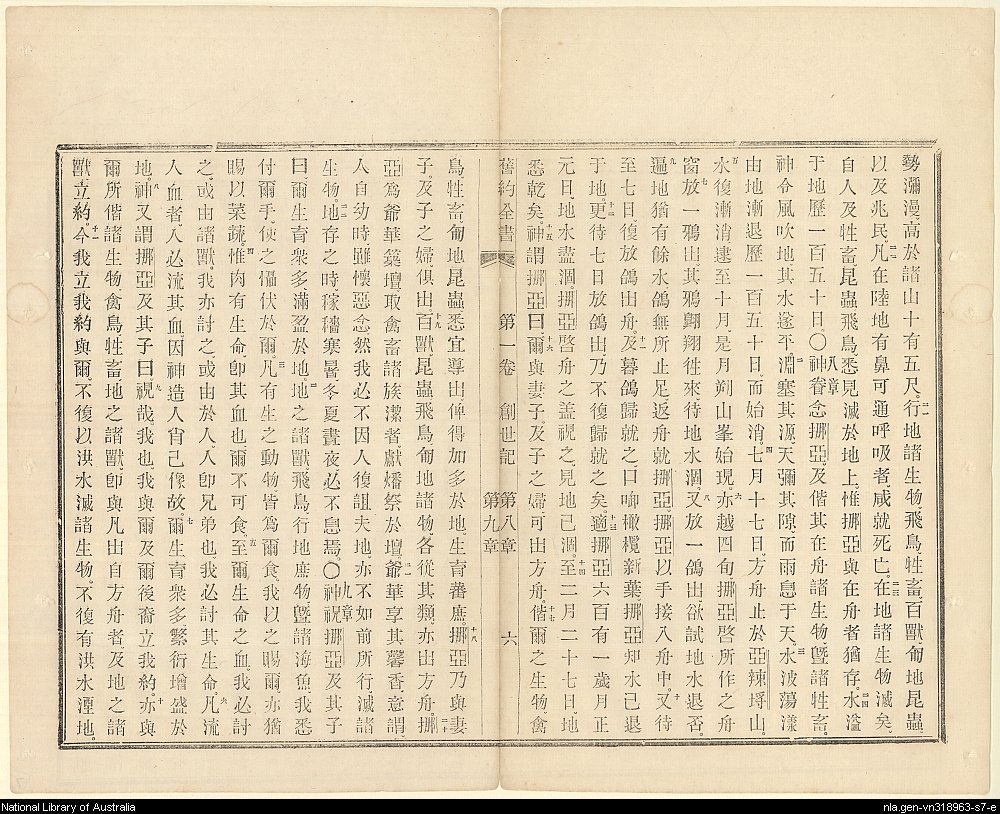 勢瀰漫、高於諸山十有五尺。二一行地諸生物、飛鳥、牲畜、百獸、匍地昆蟲、
以及兆民、二二凡在陸地有鼻可通呼吸者、咸就死亡。二三在地諸生物滅矣、
自人及牲畜昆蟲飛鳥、悉見滅於地上、惟挪亞與在舟者猶存。二四水溢
于地、歷一百五十日。〇八章神眷念挪亞、及偕其在舟諸生物曁諸牲畜。
神令風吹地、其水遂平、二淵塞其源、天彌其隙、而雨息于天、三水波蕩漾、
由地漸退、歷一百五十日、而始消。四七月十七日、方舟止於亞辣埒山。
五水復漸消、逮至十月、是月朔、山峯始現。六亦越四旬、挪亞啓所作之舟
窗、七放一鴉出、其鴉翺翔往來、待地水涸。八又放一鴿出、欲試地水退否。
九遍地猶有餘水、鴿無所止足、返舟就挪亞、挪亞以手接入舟中。十又待
至七日、復放鴿出舟、十一及暮鴿歸就之、口啣橄欖新葉、挪亞知水已退
于地。十二更待七日、放鴿出、乃不復歸就之矣。十三適挪亞六百有一歲、月正
元日、地水盡涸、挪亞啓舟之蓋視之、見地已涸。十四至二月二十七日、地
悉乾矣。十五神謂挪亞曰、十六爾與妻子、及子之婦、可出方舟、十七偕爾之生物禽
舊約全書 第一卷 創世記 第八章 第九章 六
鳥牲畜、匍地昆蟲、悉宜導出、俾得加多於地、生育蕃庶。十八挪亞乃與妻
子、及子之婦俱出、十九百獸昆蟲飛鳥、匍地諸物、各從其類、亦出方舟。二十挪
亞爲爺華築壇、取禽畜諸族潔者、獻燔祭於壇。二一爺華享其馨香、意謂
人自幼時、雖懷惡念、然我必不因人復詛夫地、亦不如前所行、滅諸
生物。二二地存之時、稼穡寒暑冬夏晝夜、必不息焉。〇九章神祝挪亞及其子
曰、爾生育衆多、滿盈於地。二地之諸獸、飛鳥、行地庶物、曁諸海魚、我悉
付爾手、使之懾伏於爾。三凡有生之動物、皆爲爾食、我以之賜爾、亦猶
賜以菜蔬。四惟肉有生命、卽其血也、爾不可食。五至爾生命之血、我必討
之、或由諸獸、我亦討之、或由於人、人卽兄弟也、我必討其生命。六凡流
人血者、人必流其血、因神造人肖己像故。七爾生育衆多、繁衍增盛於
地。八神又謂挪亞及其子曰、九視哉、我也、我與爾及爾後裔立我約、十亦與
爾所偕諸生物、禽鳥牲畜地之諸獸、卽與凡出自方舟者、及地之諸
獸立約。十一今我立我約與爾、不復以洪水滅諸生物、不復有洪水湮地。
National Library of Australia
nla.gen-vn318963-s7-e